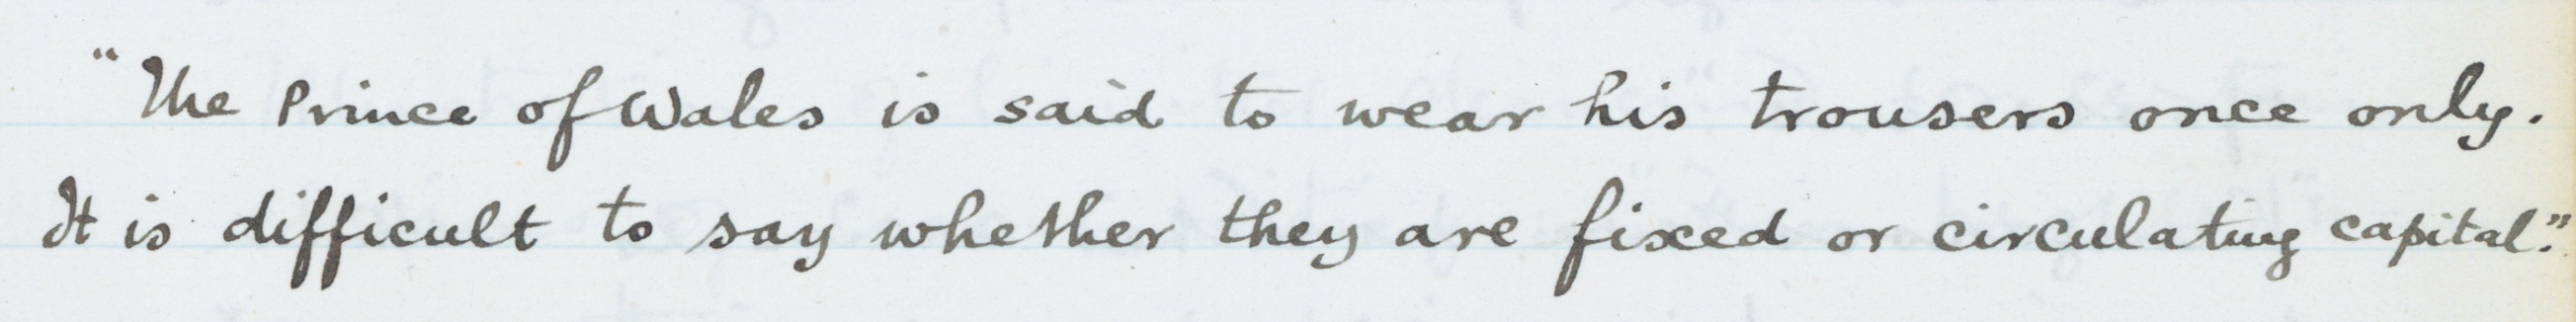 "The Prince of Wales is said to wear his trousers once only.
It is difficult to say whether they are fixed or circulating capital."